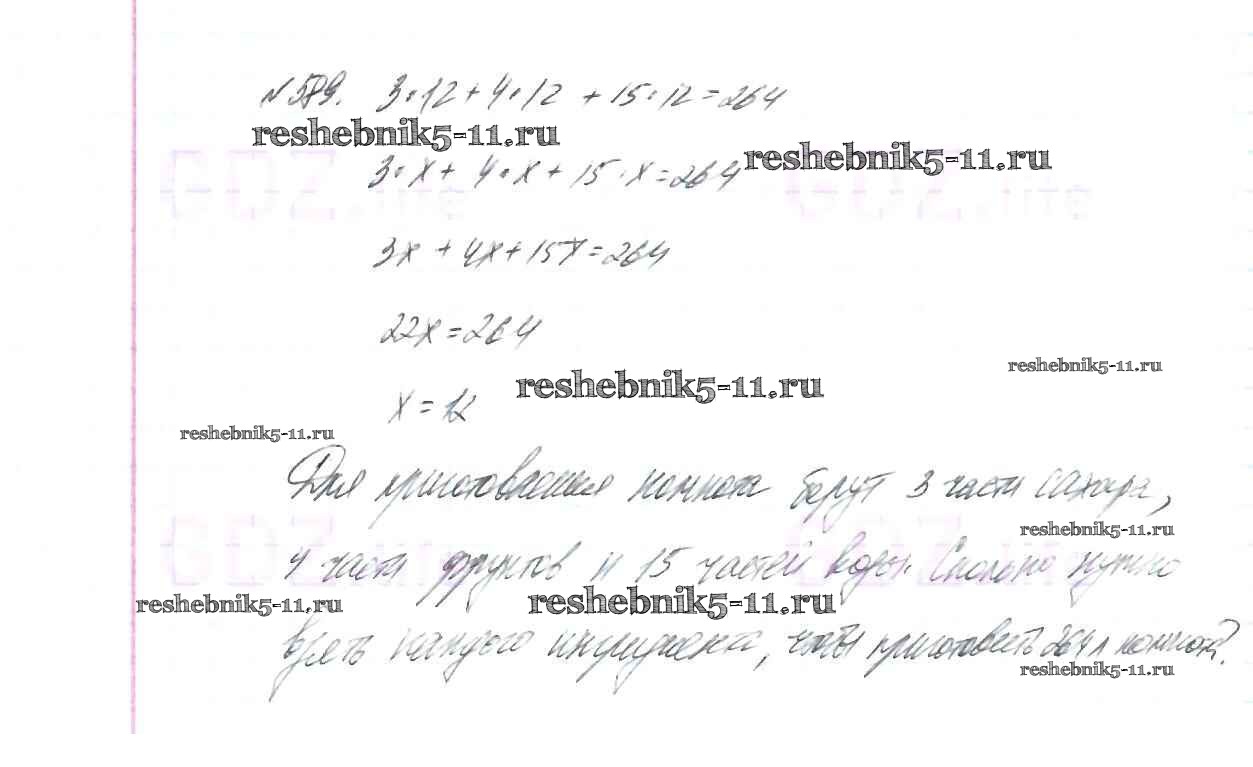 №589. 3·12+4·12 +15·12=264
reshebnik5-11.ru
reshebnik5-11.ru
3·x+ 4·x+15·x=264
GDZ.life GDZ.life
3x + 4x+15x=264
22x=264
reshebnik5-11.ru
reshebnik5-11.ru
x=12
reshebnik5-11.ru
Для приготовления компота берут 3 части сахара,
reshebnik5-11.ru
4 части фруктов и 15 частей воды. Сколько нужно
GDZ.life GDZ.life
reshebnik5-11.ru reshebnik5-11.ru
взять каждого ингредиента, чтобы приготовить 264 л компота?
reshebnik5-11.ru